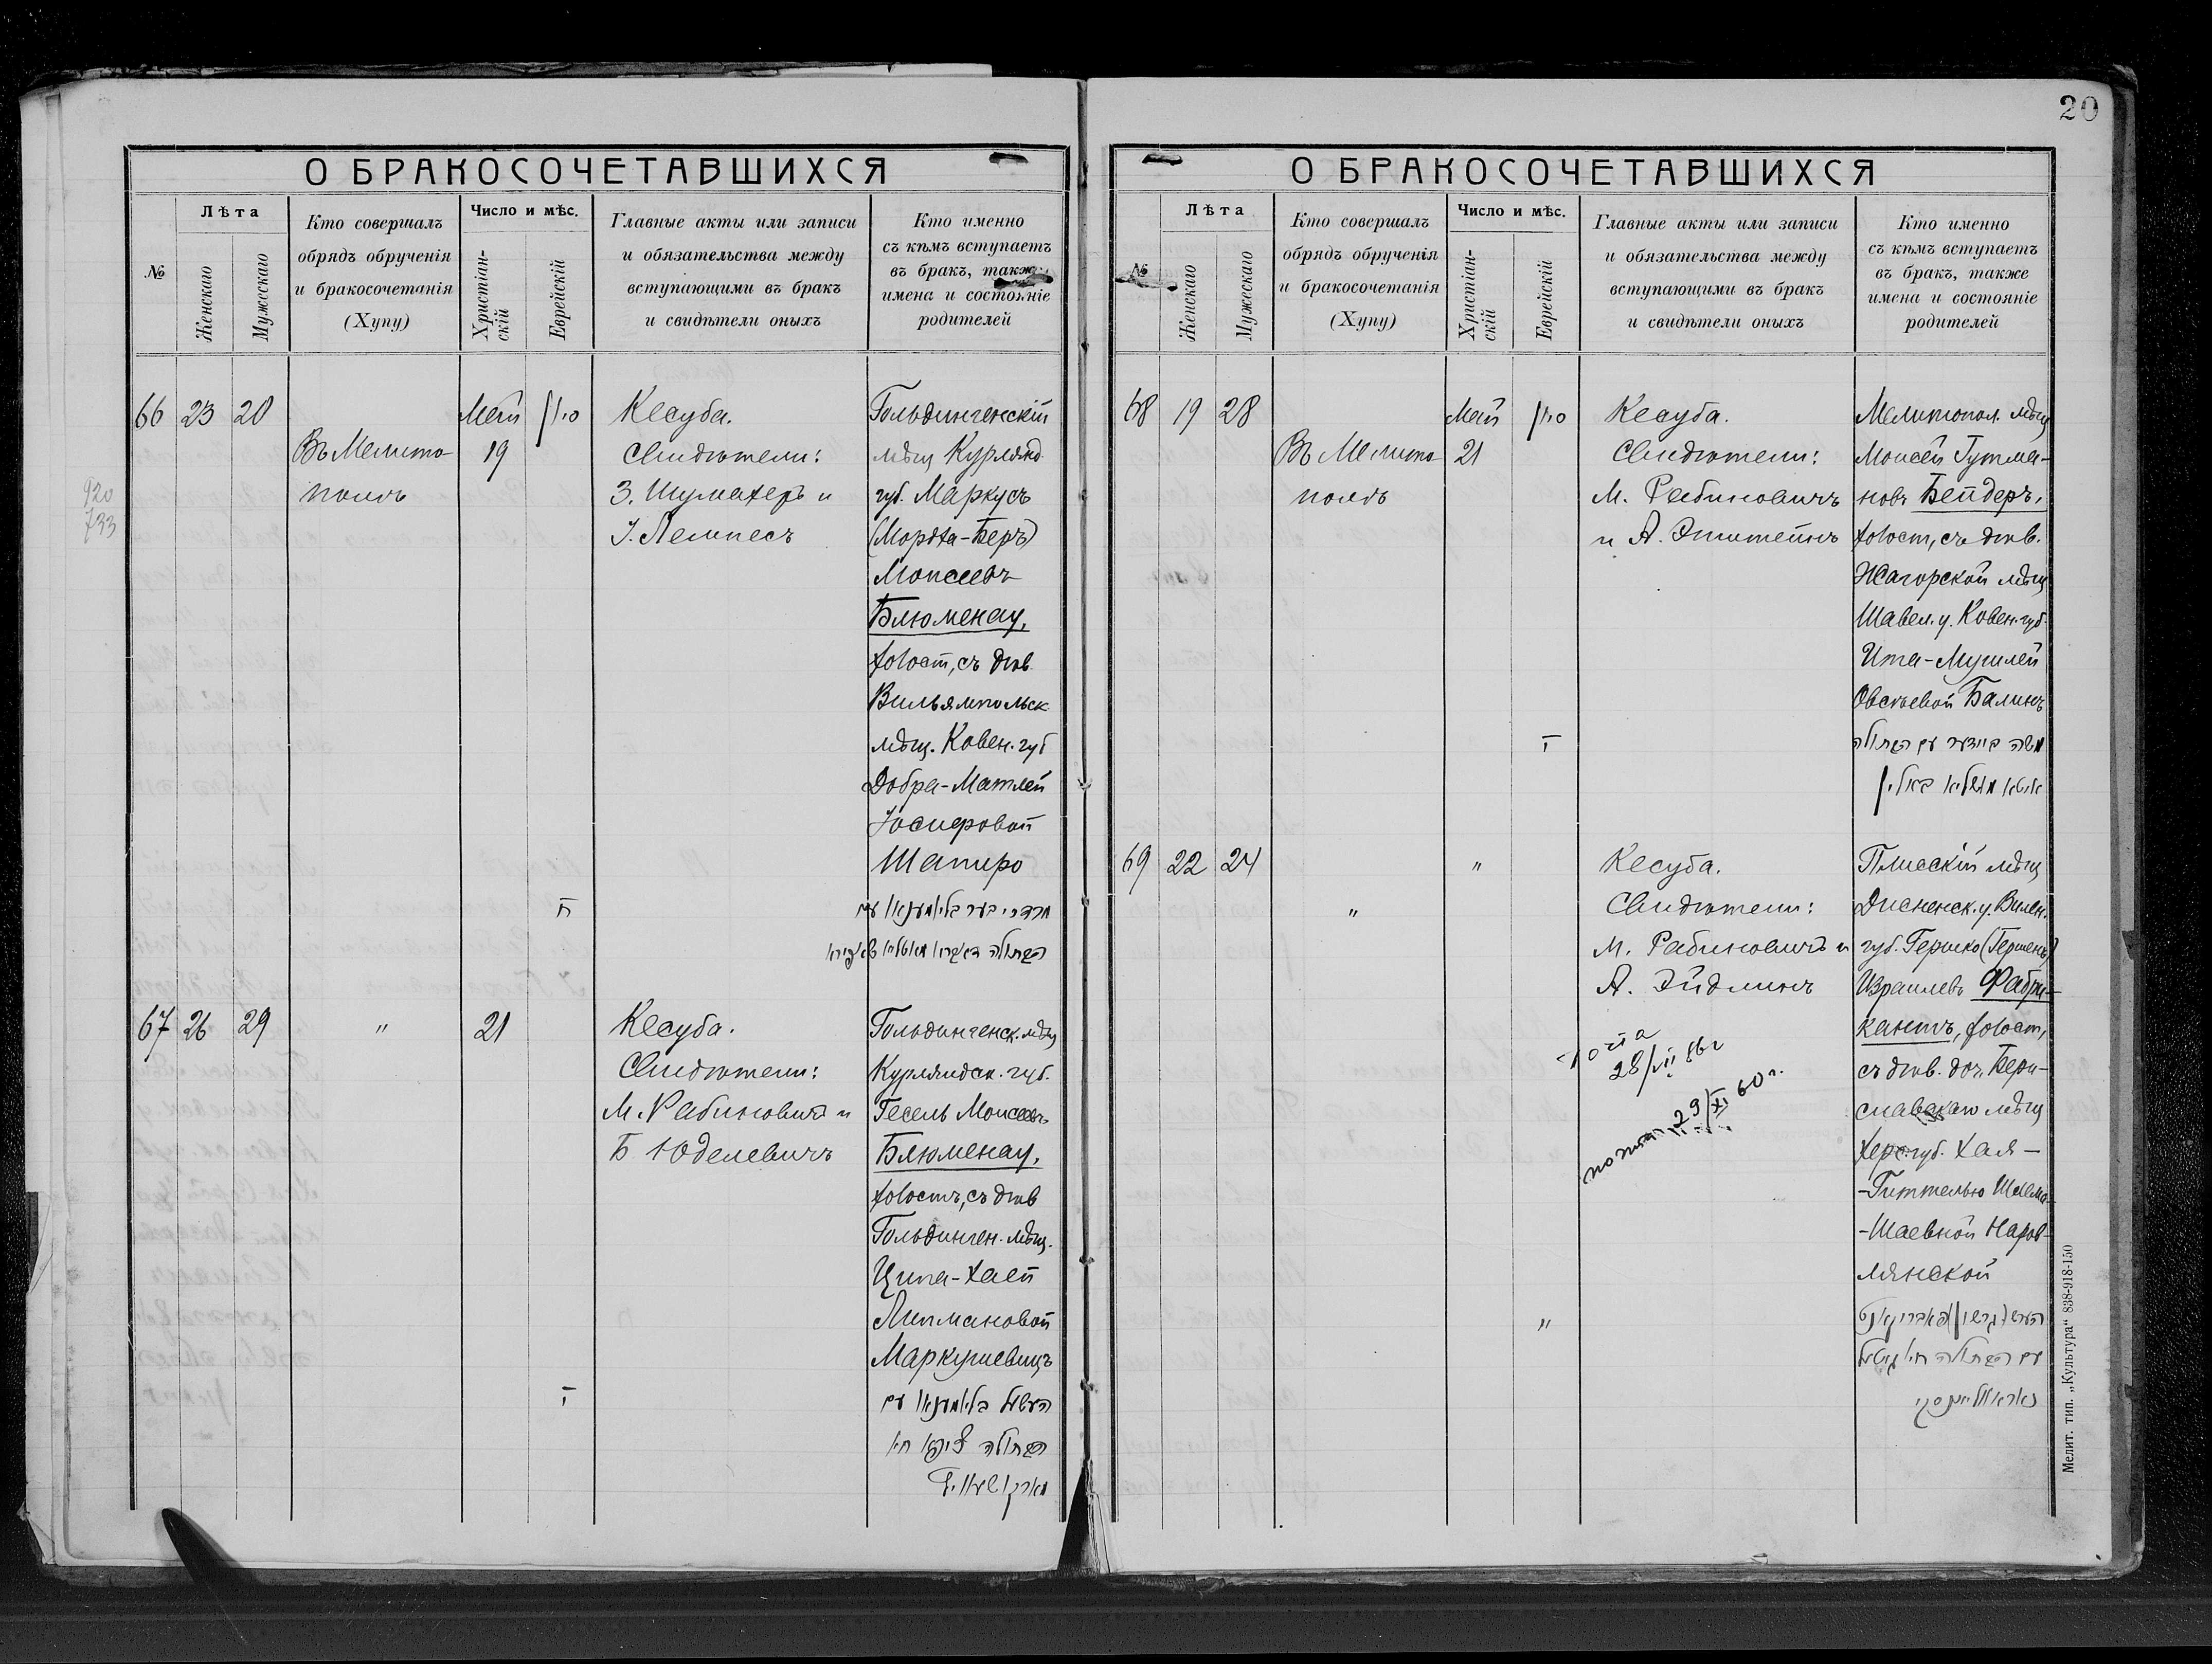 20
О БРАКОСОЧЕТАВШИХСЯ
№
Лѣта
Женскаго
Мужескаго
Кто совершалъ
обрядъ обрученія
и бракосочетанія
(Хупу)
Число и мѣс.
Христіан-
скій
Еврейскій
Главные акты или записи
и обязательства между
вступающими въ бракъ
и свидѣтели оныхъ
Кто именно
съ кѣмъ вступаетъ
въ бракъ, также
имена и состояніе
родителей
920
733
66 23 20
Въ Мелито-
полѣ
Май
19
סיון
Кесуба.
Свидѣтели:
З. Шумахеръ и
І. Лемпесъ
Гольдингенскій
мѣщ Курлянд
губ. Маркусъ
(Мордха-Беръ)
Моисеевъ
Блюменау,
холост, съ дѣв
Вильямпольск
мѣщ. Ковен. губ
Добра-Матлей
Іосиеровой
Шапиро
ח
מרדכי בער בלימענאו עם
הבתולה דאברא מאטליא שאפירא
67 26 29
"
21
Кесуба.
Свидѣтели:
М. Рабиновичъ и
Б Юделевичъ
Гольдингенск. мѣщ
Курляндск. губ.
Гесель Моисеевъ
Блюменау,
холостъ, съ дѣв
Гольдинген. мѣщ.
Ципа-Хаей
Липмановой
Маркушевицъ
י
העשעל בלימענאו עם
הבתולה ציפא חיא
О БРАКОСОЧЕТАВШИХСЯ
№
Лѣта
Женскаго
Мужескаго
Кто совершалъ
обрядъ обрученія
и бракосочетанія
(Хупу)
Число и мѣс.
Христіан-
скій
Еврейскій
Главные акты или записи
и обязательства между
вступающими въ бракъ
и свидѣтели оныхъ
Кто именно
съ кѣмъ вступаетъ
въ бракъ, также
имена и состояніе
родителей
68 19 28
Въ Мелито
полѣ
Май
21
סיון
Кесуба.
Свидѣтели:
М. Рабиновичъ
и А. Эпштейнъ
Мелитопол. мѣщ
Моисей Гутма-
новъ Бендеръ,
холост, съ дѣв.
Жагорской мѣщ
Шавел. у. Ковен. губ.
Ита-Мушлей
Овсѣевой Балинъ
י
משה בענדער עם הבתולה
איטא מושליא באלין
69 22 24
"
"
Кесуба.
Свидѣтели:
М. Рабиновичъ и
А. Эйдлинъ
28/VII 86 г
29/XI 60 г.
Плисскій мѣщ
Дисненск. у. Вилен.
губ. Гершко (Гершенъ)
Израилевъ Фабри-
кантъ, холост,
съ дѣв. доч. Бери-
славскаго мѣщ
Херс. губ. Хая-
-Гиттелью Шлема-
-Шаевной Наров-
лянской
"
הערש (גרשון) פאבריקאנט
עם הבתולה חיה גיטעל
נאראוולאנסקי
Мелит. тип. „Культура“ 838-918-150